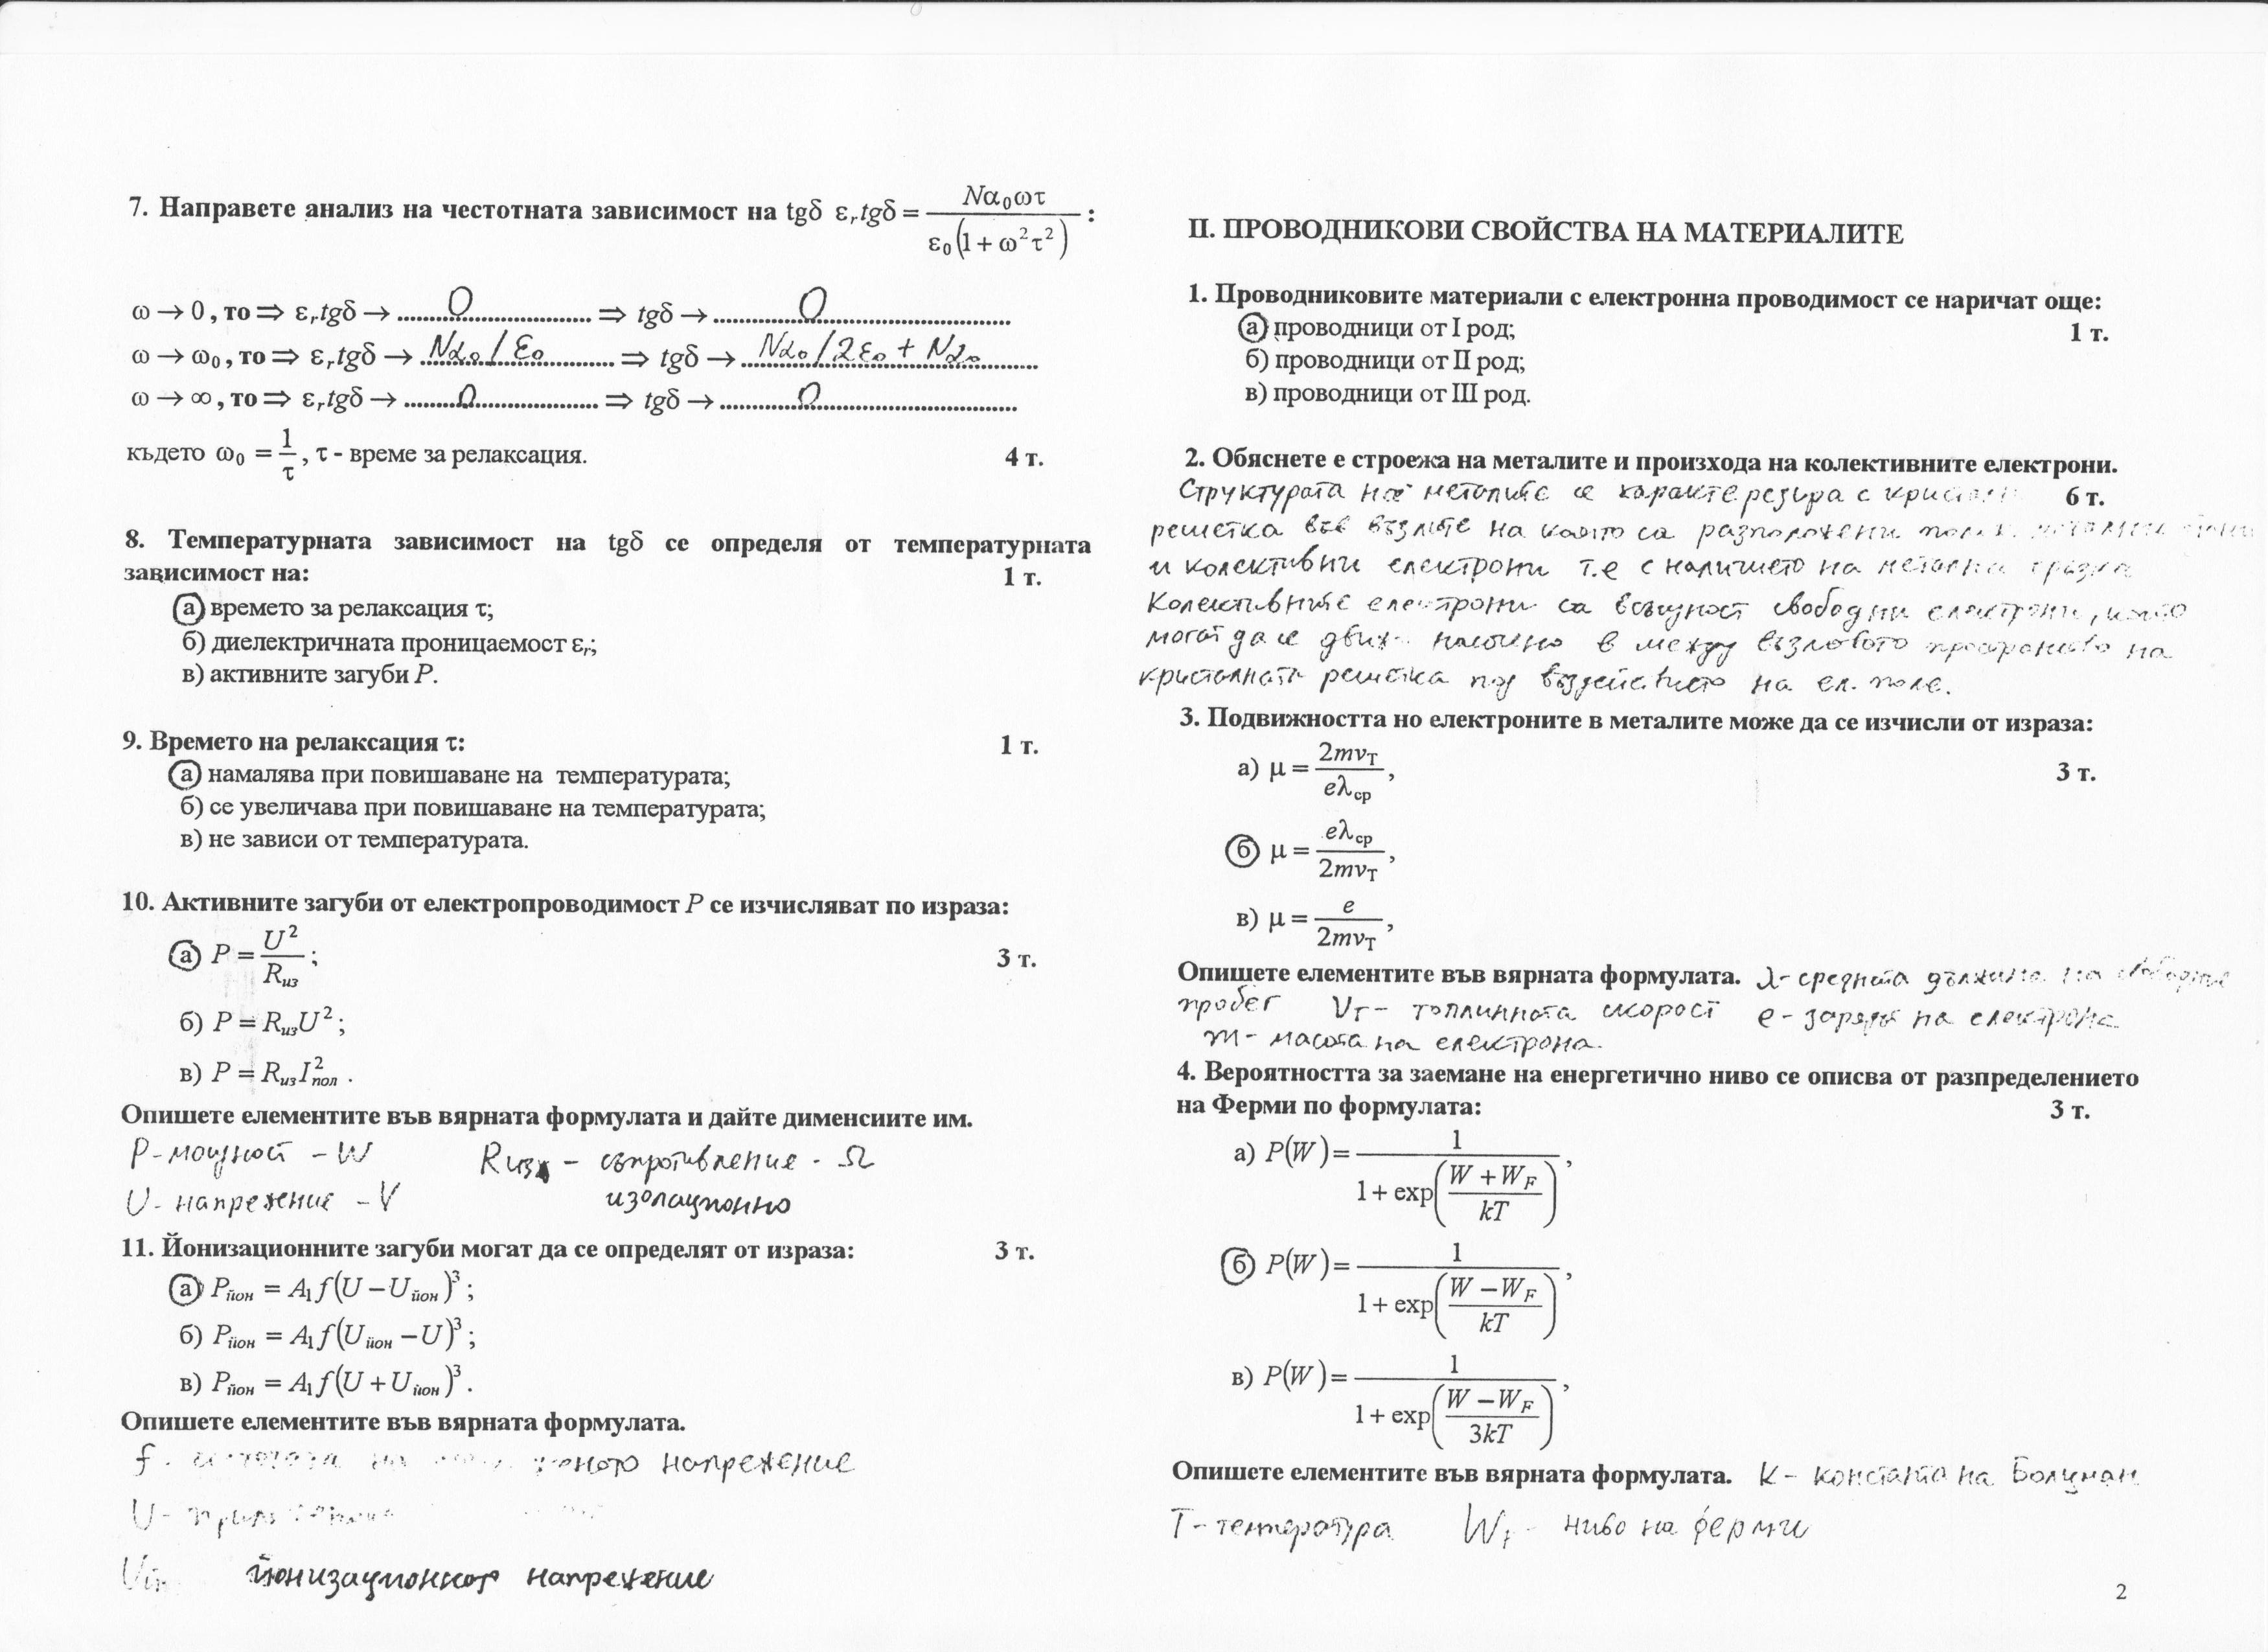 7. Направете анализ на честотната зависимост на tgδ ε_r tgδ = Nα₀ωτ / ε₀(1 + ω²τ²) :
ω → 0, то ⇒ ε_r tgδ → ......0...... ⇒ tgδ → ......0......
ω → ω₀, то ⇒ ε_r tgδ → Nα₀/ε₀ ⇒ tgδ → Nα₀/2ε₀ + Nα₀
ω → ∞, то ⇒ ε_r tgδ → ......0...... ⇒ tgδ → ......0......
където ω₀ = 1/τ, τ - време за релаксация. 4 т.
8. Температурната зависимост на tgδ се определя от температурната
зависимост на: 1 т.
а) времето за релаксация τ;
б) диелектричната проницаемост ε_r;
в) активните загуби P.
9. Времето на релаксация τ: 1 т.
а) намалява при повишаване на температурата;
б) се увеличава при повишаване на температурата;
в) не зависи от температурата.
10. Активните загуби от електропроводимост P се изчисляват по израза:
а) P = U² / R_из ; 3 т.
б) P = R_из U² ;
в) P = R_из I²_пол .
Опишете елементите във вярната формулата и дайте дименсиите им.
P - мощност - W R из - съпротивление - Ω
U - напрежение - V изолационно
11. Йонизационните загуби могат да се определят от израза: 3 т.
а) P_йон = A₁f(U − U_йон)³ ;
б) P_йон = A₁f(U_йон − U)³ ;
в) P_йон = A₁f(U + U_йон)³ .
Опишете елементите във вярната формулата.
f - на напрежение
U -
U йонизационно напрежение
II. ПРОВОДНИКОВИ СВОЙСТВА НА МАТЕРИАЛИТЕ
1. Проводниковите материали с електронна проводимост се наричат още:
а) проводници от I род; 1 т.
б) проводници от II род;
в) проводници от III род.
2. Обяснете е строежа на металите и произхода на колективните електрони.
Структурата на металите се характерезира с 6 т.
решетка във възлите на която са разположени
и колективни електрони т.е с наличието на метална
Колективните електрони са всъщност свободни електрони, които
могат да се движ в между възловото пространство на
кристалната решетка под въздействието на ел. поле.
3. Подвижността но електроните в металите може да се изчисли от израза:
а) μ = 2mv_T / eλ_ср , 3 т.
б) μ = eλ_ср / 2mv_T ,
в) μ = e / 2mv_T ,
Опишете елементите във вярната формулата. λ - средната дължина на
пробег V_T - топлинната скорост e - заряда на електрона
m - масата на електрона.
4. Вероятността за заемане на енергетично ниво се описва от разпределението
на Ферми по формулата: 3 т.
а) P(W) = 1 / (1 + exp((W + W_F) / kT)) ,
б) P(W) = 1 / (1 + exp((W − W_F) / kT)) ,
в) P(W) = 1 / (1 + exp((W − W_F) / 3kT)) ,
Опишете елементите във вярната формулата. K - константа на Болцман
T - температура W_f - ниво на ферми
2